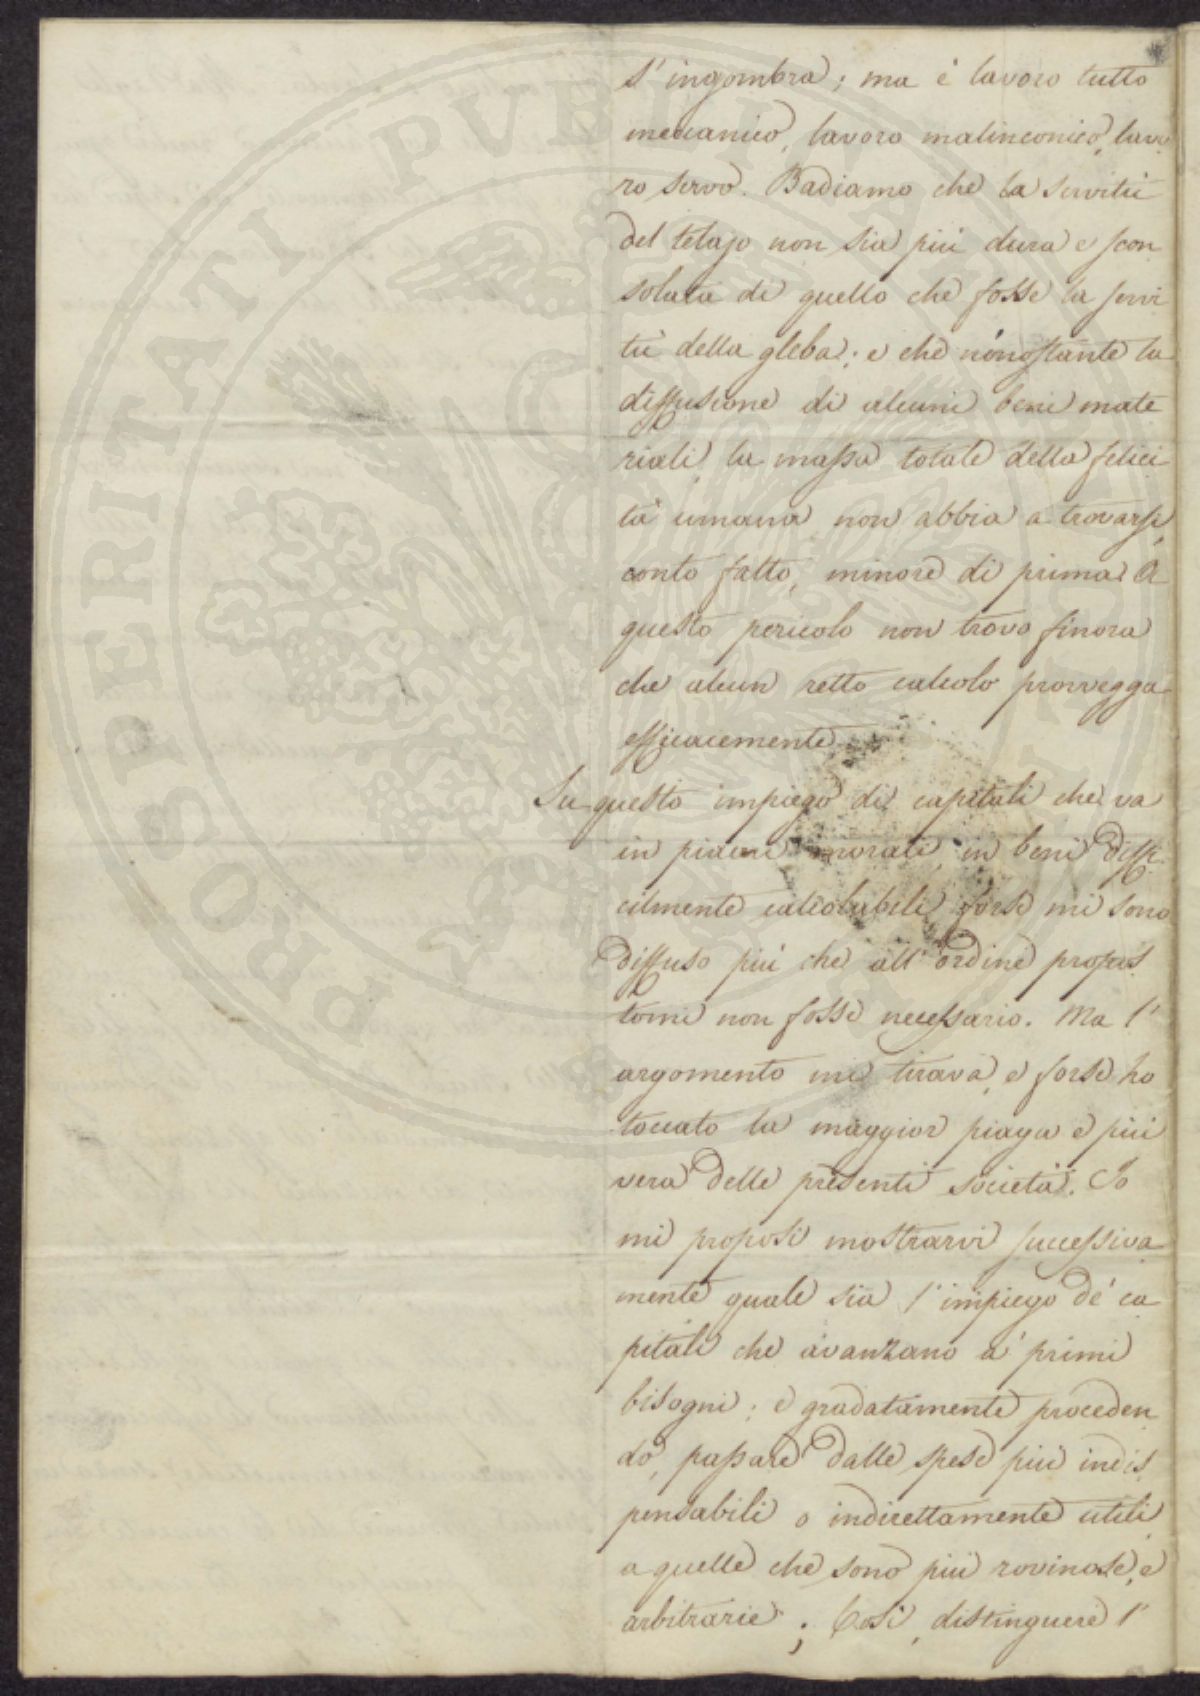 s' ingombra; ma è lavoro tutto
meccanico, lavoro malinconico, lavo
ro servo. Badiamo che la servitù
del telajo non sia più dura e scon
solata di quello che fosse la servi
tù della gleba; e che nonostante la
diffusione di alcuni beni mate
riali, la massa totale della felici
tà umana non abbia a trovarsi,
conto fatto, minore di prima. A
questo pericolo non trovo finora
che alcun retto calcolo provvegga
efficacemente.
Su questo impiego di capitali che va
in piaceri morali, in beni diffi
cilmente calcolabili, forse mi sono
diffuso più che all' ordine propos
tomi non fosse necessario. Ma l'
argomento mi tirava, e forse ho
toccato la maggior piaga e più
vera delle presenti società. Io
mi proposi mostrarvi successiva
mente quale sia l' impiego de' ca
pitali che avanzano a' primi
bisogni; e gradatamente proceden
do, passare dalle spese più indis
pensabili o indirettamente utili
a quelle che sono più rovinose, e
arbitrarie; Così, distinguere l'
PROSPERITATI PVBLICAE